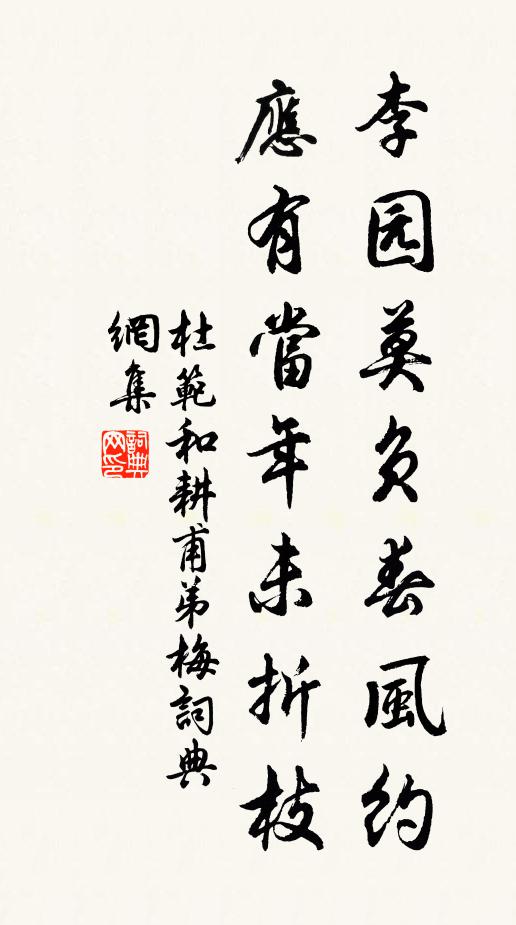 李园莫负春風約
應有當年未折枝
杜範和耕甫弟梅詞典
網集
詞典
网印